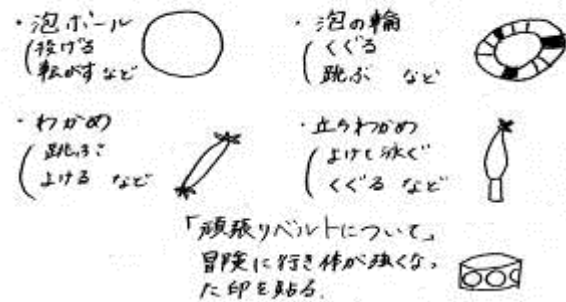 ・泡ボール
(投げる
転がすなど
・泡の輪
(くぐる
跳ぶ など
・わかめ
(跳ぶ
よける など
・立つわかめ
(よけて泳ぐ
くぐる など
「頑張りベルトについて」
冒険に行き体が強くなっ
た印を貼る.